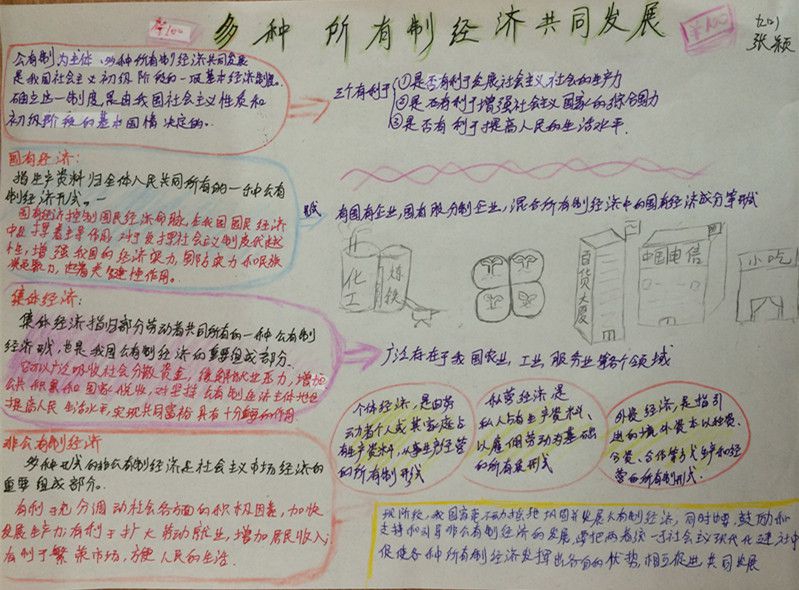 多种所有制经济共同发展
¥100
¥100
张颖
公有制为主体、多种所有制经济共同发展
是我国社会主义初级阶段的一项基本经济制度。
确立这一制度是由我国社会主义性质和
初级阶段的基本国情决定的。
三个有利于
①是否有利于发展社会主义社会的生产力
②是否有利于增强社会主义国家的综合国力
③是否有利于提高人民的生活水平.
国有经济:
指生产资料归全体人民共同所有的一种公有
制经济形式。
国有经济控制国民经济命脉,在我国国民经济
中发挥着主导作用,对于发挥社会主义制度优越
性,增强我国的经济实力,国防实力和民族
凝聚力,起着关键性作用。
形式
有国有企业,国有股份制企业,混合所有制经济中的国有经济成分等形式
化工
炼铁
百货大厦
中国电信
小吃
集体经济:
集体经济指归部分劳动者共同所有的一种公有制
经济形式,也是我国公有制经济的重要组成部分.
可以广泛吸收社会分散资金,缓解就业压力,增加
公共积累和国家税收,对坚持公有制经济主体地位
提高人民生活水平,实现共同富裕具有十分的作用.
广泛存在于我国农业,工业,服务业等各个领域
个体经济,是由劳
动者个人或其家庭占
有生产资料,从事生产经营
的所有制形式
私营经济,是
私人占有生产资料、
以雇佣劳动为基础
的所有制形式
外资经济,是指引
进的境外资本以独资、
合资、合作等方式生产和经
营的所有制形式.
非公有制经济
多种形式的非公有制经济是社会主义市场经济的
重要组成部分.
有利于充分调动社会各方面的积极因素,加快
发展生产力;有利于扩大劳动就业,增加居民收入;
有利于繁荣市场,方便人民的生活.
现阶段,我国毫不动摇地巩固和发展公有制经济,同时也鼓励和
支持和引导非公有制经济的发展,要把两者统一于社会主义现代化建设中
促使各种所有制经济发挥出各自的优势,相互促进共同发展